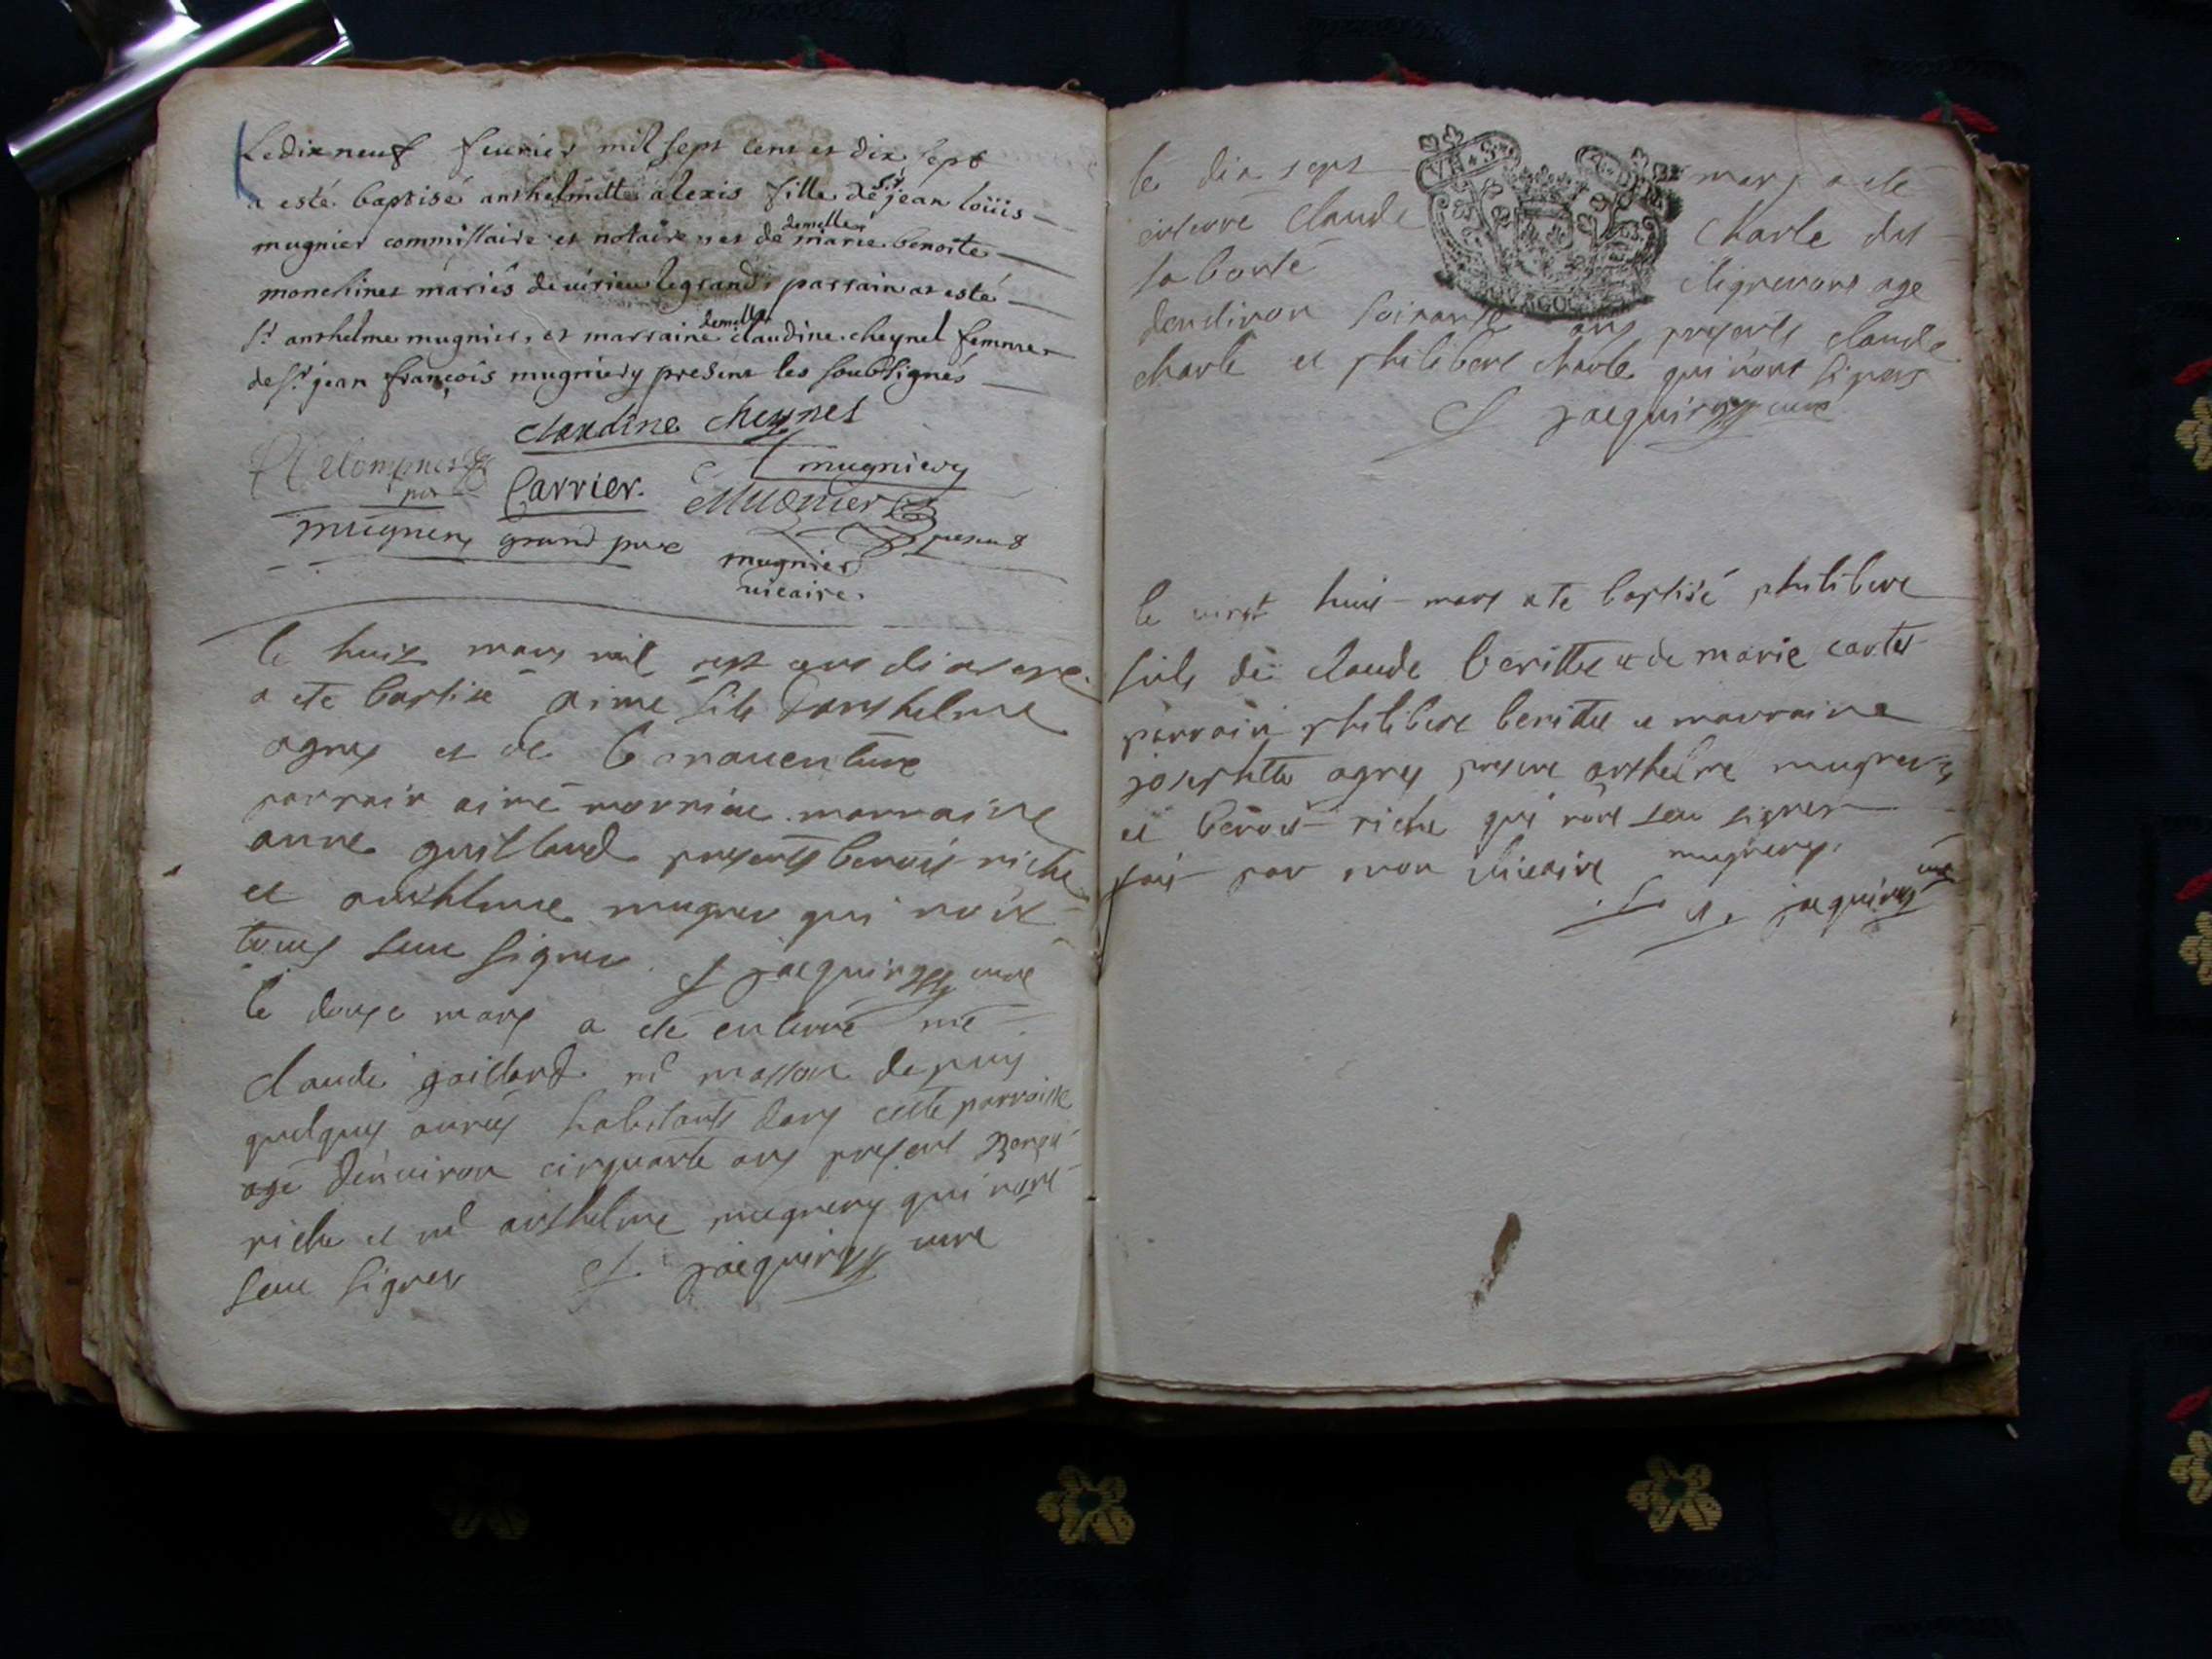 Le dix neuf feurier mil sept cens et dix sept
a esté baptisé anthelmitte alexis fille de sr jean loüis
mugnier commissaire et notaire, et de demelle marie benoite
monchinet mariés de uirieu le grand, parrain at esté
sr anthelme mugnier, et marraine demelle claudine cheynel femme
de sr jean françois mugniery present les soubsignés
claudine cheynel
mugniery
Carrier. Mugnier
mugnery grand pere present
mugnier
uicaire.
le huit mars mil sept cens dix sept
a ete baptisé aimé fils d'anthelme
agnes et de bonauenture
parrain aimé marraine
anne guilland presents benoit riche
et anthelme mugner qui n'ont
sceu signer. jacquin curé
le douze mars a eté enterré me
claude gaillard me masson depuis
quelques années habitants dans cette parroisse
agé d'enuiron cinquante ans present
riche et me anthelme mugnery qui n'ont
sceu signer jacquin curé
le dix sept mars a eté
enterré claude charle dit
la bonté uigneront agé
denuiron soixante ans presents claude
charle et philibert charle qui n'ont signés
jacquin curé
le vingt huit mars a été baptisé philibert
fils de claude berittet et de marie cartet
parrain philibert berittet et marraine
josephtte agnes present anthelme mugnery
et benoit riche qui n'ont sceu signer
fait par mon vicaire mugnery.
jacquin curé